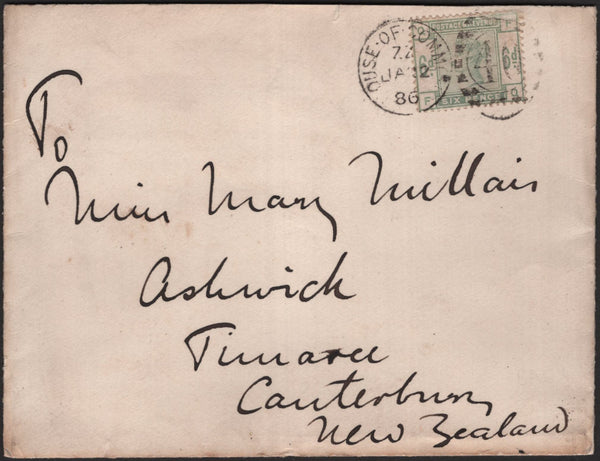 OUSE·OF·COMM
ZZ
JA 2
86
POSTAGE & REVENUE
6D
F
SIX PENCE
Q
To
Miss Mary Millais
Ashwick
Timaru
Canterbury
New Zealand